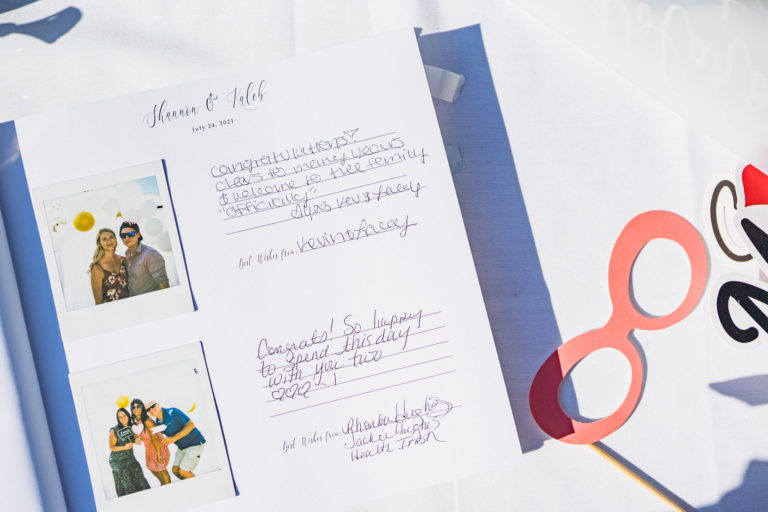 Shannon & Kaleb
July 24, 2021
Congratulations!
to many years
& welcome to thee family
"officially"
Kev & Lacey
Best Wishes from: Kevin & Lacey
Congrats! So happy
to spend this day
with you two
Best Wishes from: Rhonda Hughes
Jackie Hughes